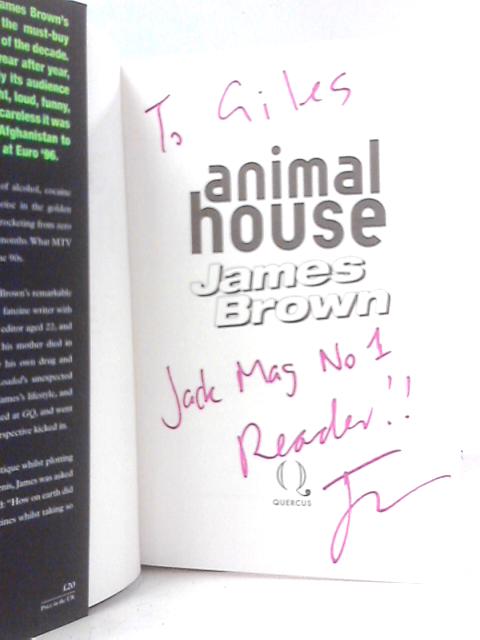 ames Brown's
the must-buy
of the decade.
year after year,
ly its audience
ht, loud, funny,
careless it was
Afghanistan to
at Euro '96.
of alcohol, cocaine
rise in the golden
rocketing from zero
months. What MTV
he 90s.
Brown's remarkable
fanzine writer with
editor aged 22, and
his mother died in
his own drug and
Loaded's unexpected
ames's lifestyle, and
ed at GQ, and went
rspective kicked in.
tique whilst plotting
enis, James was asked
d: "How on earth did
zines whilst taking so
£20
Price in the UK
To Giles
animal
house
James
Brown
Jack Mag No 1
Reader!!
QUERCUS